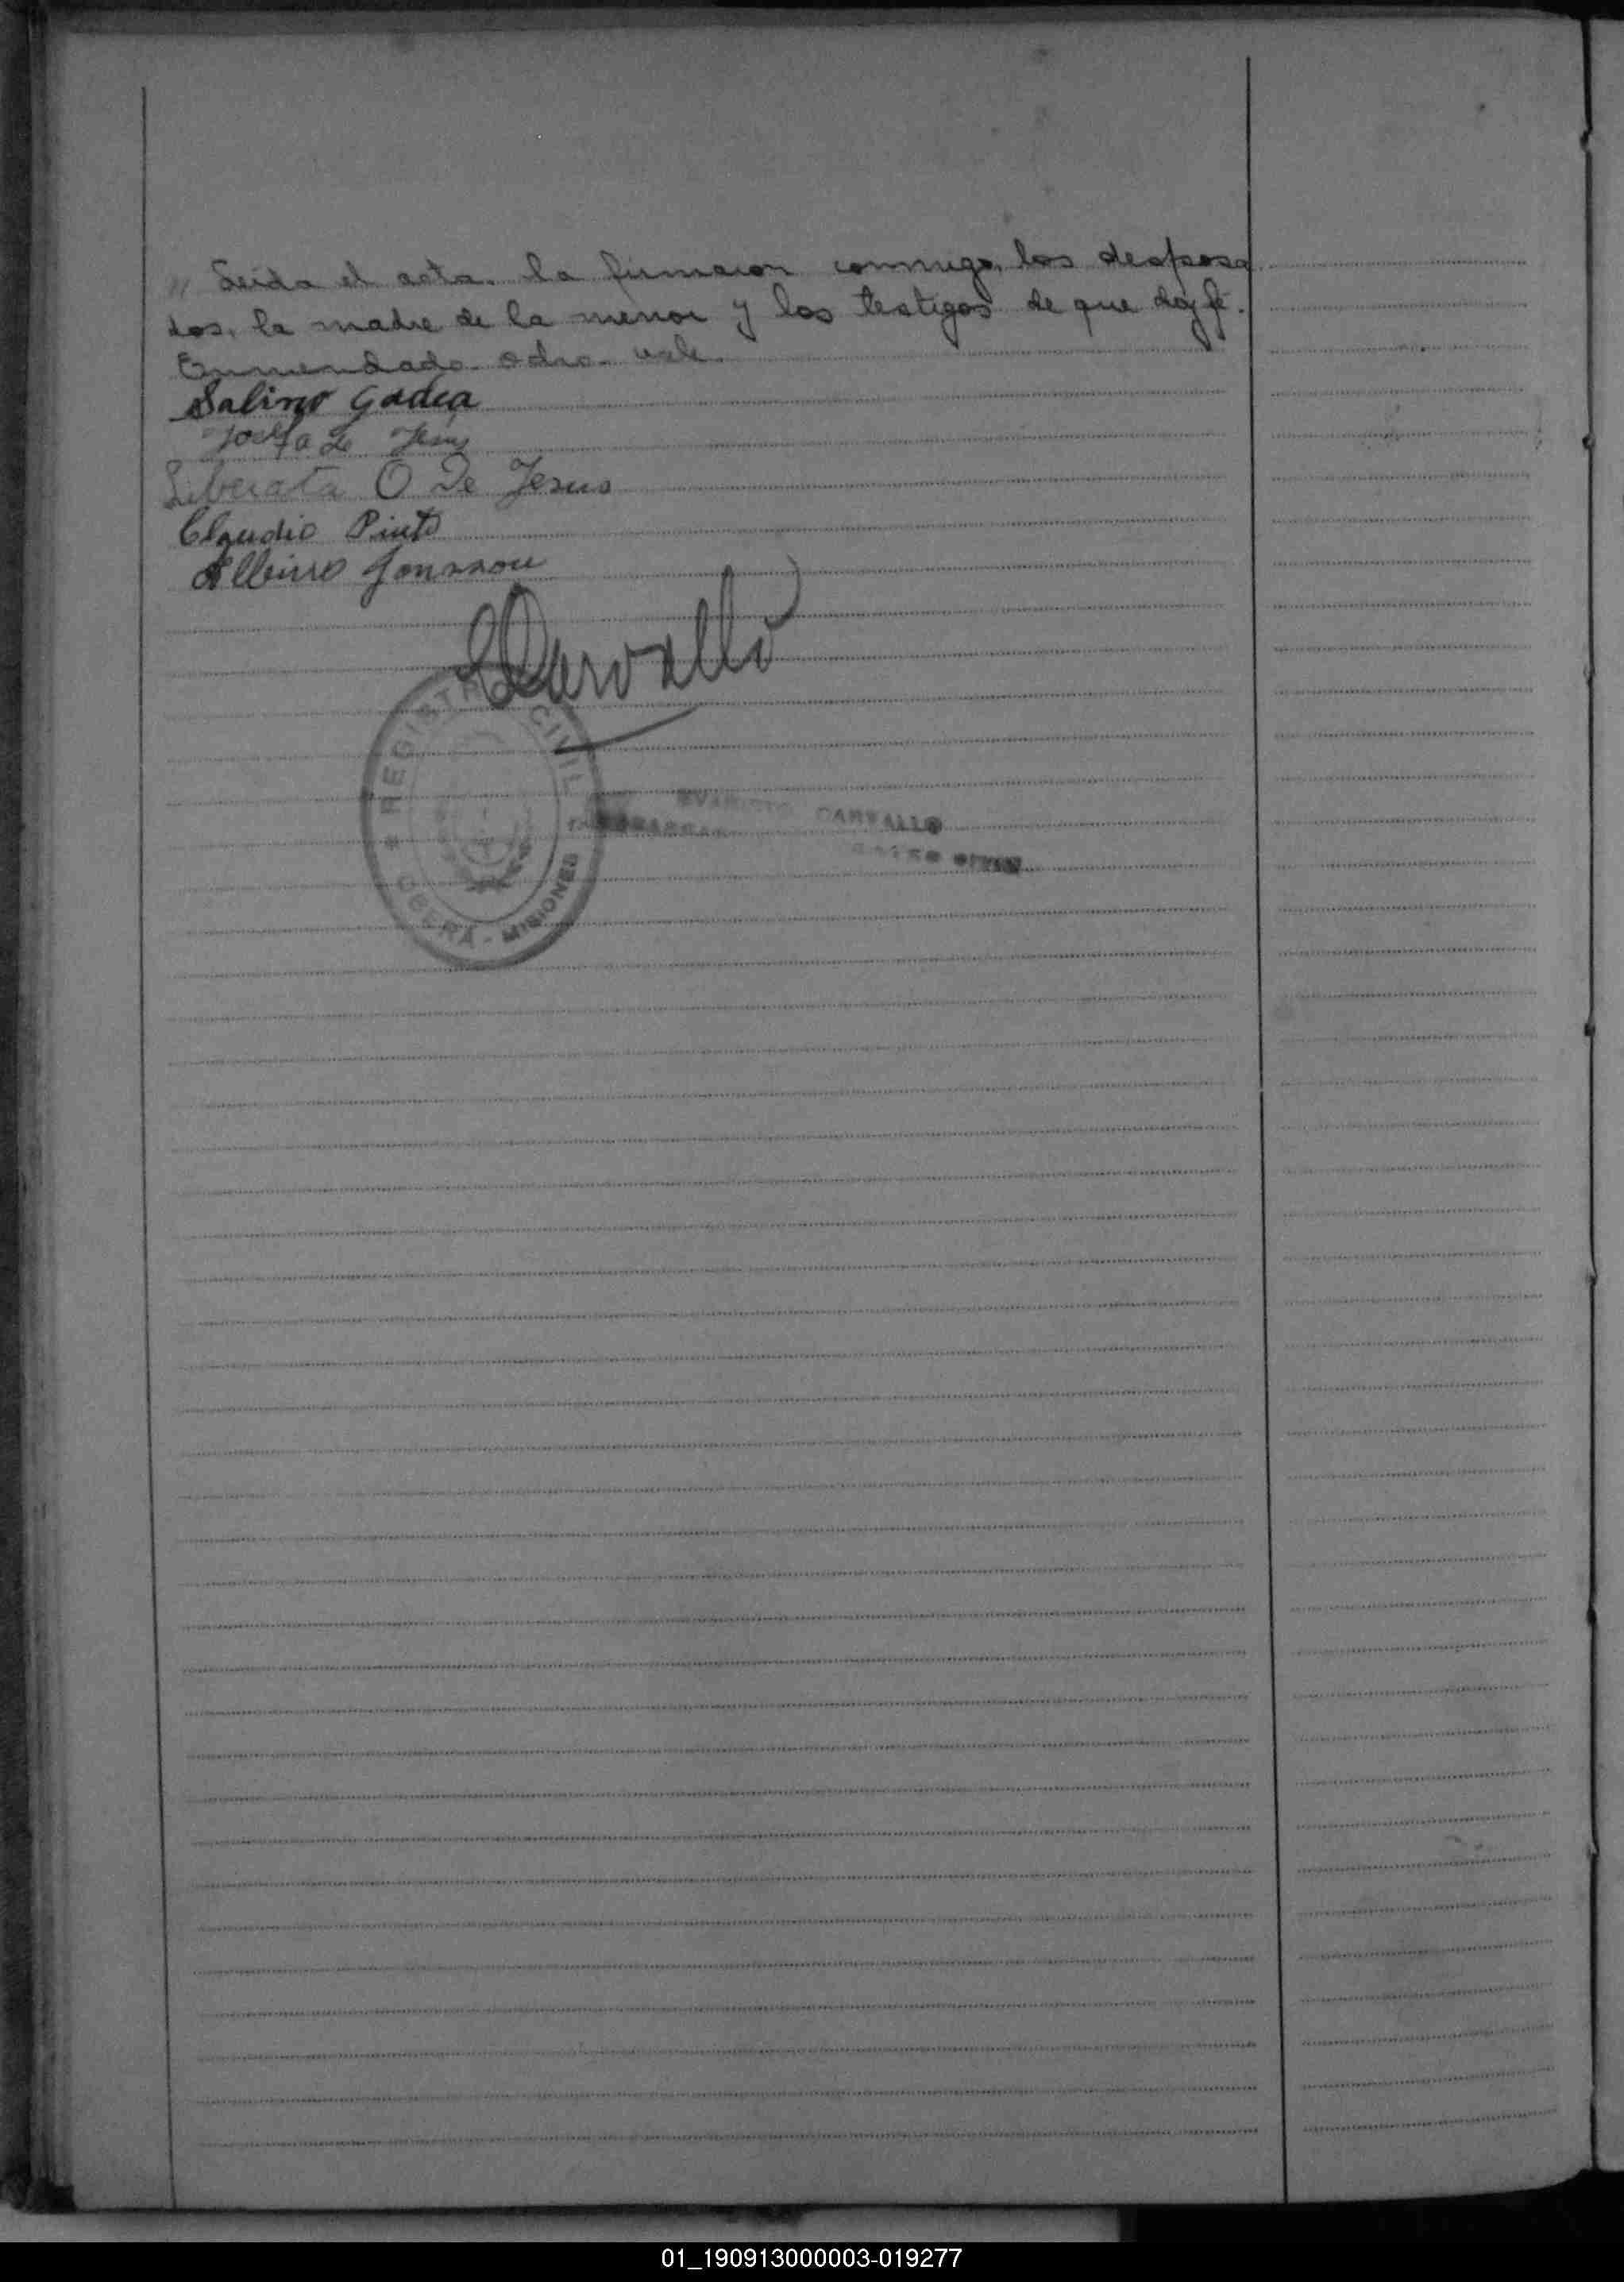 " Leida el acta. la firmaron conmigo, los desposa
dos, la madre de la menor y los testigos de que doy fe.
Enmendado. ocho. vale.
Salirio Gadea
Josefa De Jesus
Liberata O De Jesus
Claudio Pinto
Albino
Carvallo
REGISTRO CIVIL
OBERA - MISIONES
EVARISTO CARVALLO
01_190913000003-019277